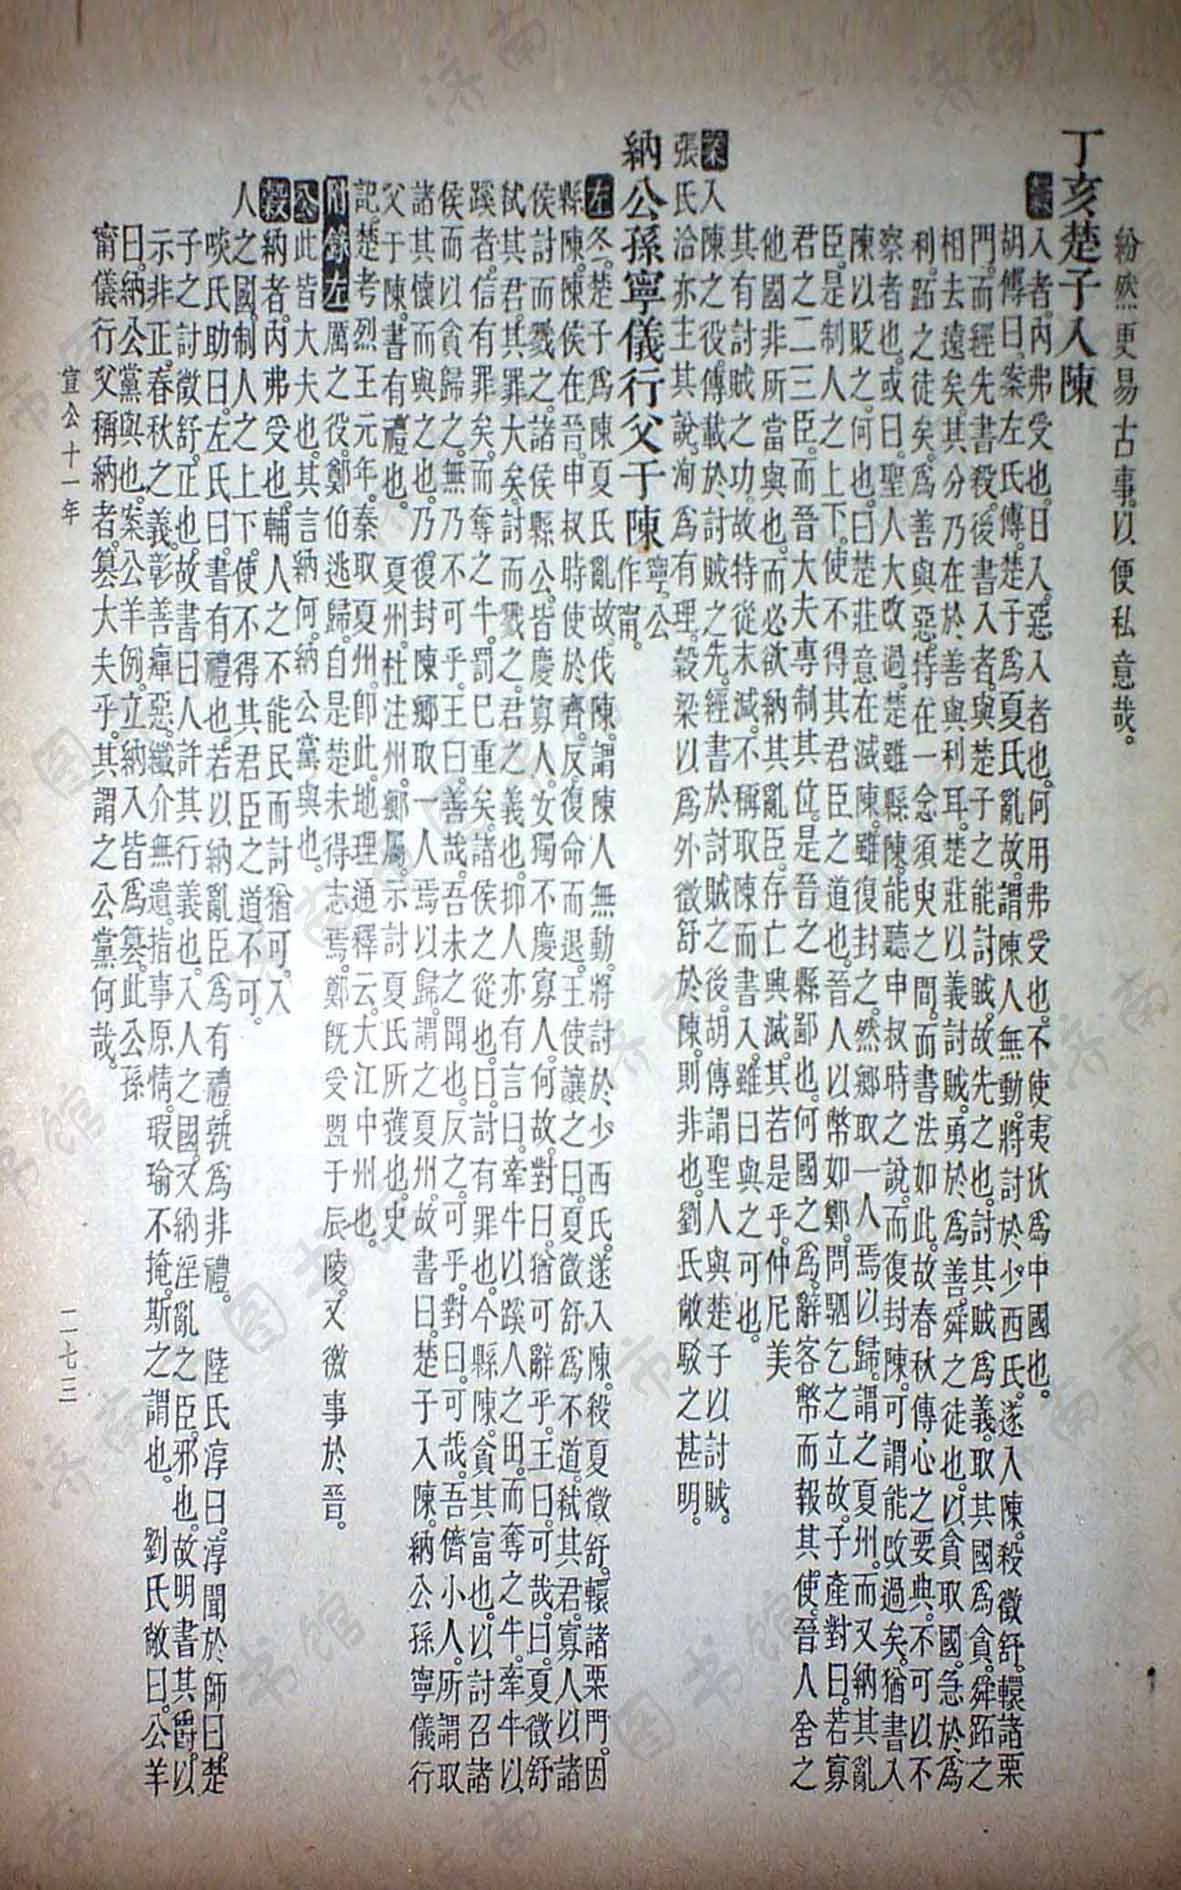 紛然更易古事。以便私意哉。
丁亥楚子入陳
穀入者。內弗受也。日入。惡入者也。何用弗受也。不使夷狄爲中國也。
胡傳曰。案左氏傳。楚子爲夏氏亂故。謂陳人無動。將討於少西氏。遂入陳。殺徵舒。轘諸栗
門。而經先書殺。後書入者。與楚子之能討賊。故先之也。討其賊爲義。取其國爲貪。舜跖之
相去遠矣。其分乃在於善與利耳。楚莊以義討賊。勇於爲善。舜之徒也。以貪取國。急於爲
利。跖之徒矣。爲善與惡。特在一念須臾之間。而書法如此。故春秋傳心之要典。不可以不
察者也。或曰。聖人大改過。楚雖縣陳。能聽申叔時之說。而復封陳。可謂能改過矣。猶書入
陳以貶之。何也。曰。楚莊意在滅陳。雖復封之。然鄉取一人焉以歸。謂之夏州。而又納其亂
臣。是制人之上下。使不得其君臣之道也。晉人以幣如鄭。問駟乞之立故。子產對曰。若寡
君之二三臣。而晉大夫專制其位。是晉之縣鄙也。何國之爲。辭客幣而報其使。晉人舍之
他國非所當與也。而必欲納其亂臣。存亡興滅。其若是乎。仲尼美
其有討賊之功。故特從末減。不稱取陳而書入。雖曰與之可也。
案入陳之役。傳載於討賊之先。經書於討賊之後。胡傳謂聖人與楚子以討賊。
張氏洽亦主其說。洵爲有理。穀梁以爲外徵舒於陳。則非也。劉氏敞駁之甚明。
納公孫寧儀行父于陳寧。公
作甯。
左冬。楚子爲陳夏氏亂故。伐陳。謂陳人無動。將討於少西氏。遂入陳。殺夏徵舒。轘諸栗門。因
縣陳。陳侯在晉。申叔時使於齊。反。復命而退。王使讓之曰。夏徵舒爲不道。弒其君。寡人以諸
侯討而戮之。諸侯縣公。皆慶寡人。女獨不慶寡人。何故。對曰。猶可辭乎。王曰。可哉。曰。夏徵舒
弒其君。其罪大矣。討而戮之。君之義也。抑人亦有言曰。牽牛以蹊人之田。而奪之牛。牽牛以
蹊者。信有罪矣。而奪之牛。罰已重矣。諸侯之從也。曰。討有罪也。今縣陳。貪其富也。以討召諸
侯而以貪歸之。無乃不可乎。王曰。善哉。吾未之聞也。反之。可乎。對曰。可哉。吾儕小人。所謂取
諸其懷而與之也。乃復封陳。鄉取一人焉以歸。謂之夏州。故書曰。楚子入陳。納公孫寧儀行
父于陳。書有禮也。夏州。杜注州。鄉屬。示討夏氏所獲也。史
記。楚考烈王元年。秦取夏州。卽此。地理通釋云。大江中州也。
附錄左厲之役。鄭伯逃歸。自是楚未得志焉。鄭旣受盟于辰陵。又徼事於晉。
公此皆大夫也。其言納何。納公黨與也。
穀納者。內弗受也。輔人之不能民而討猶可。入
人之國。制人之上下。使不得其君臣之道不可。
啖氏助曰。左氏曰。書有禮也。若以納亂臣爲有禮。孰爲非禮。陸氏淳曰。淳聞於師曰。楚
子之討徵舒。正也。故書曰人。許其行義也。入人之國。又納淫亂之臣。邪也。故明書其爵。以
示非正。春秋之義。彰善癉惡。纖介無遺。指事原情。瑕瑜不掩。斯之謂也。劉氏敞曰。公羊
曰。納公黨與也。案公羊例。立納入皆爲篡。此公孫
甯儀行父稱納者。篡大夫乎。其謂之公黨何哉。
宣公十一年
二七三